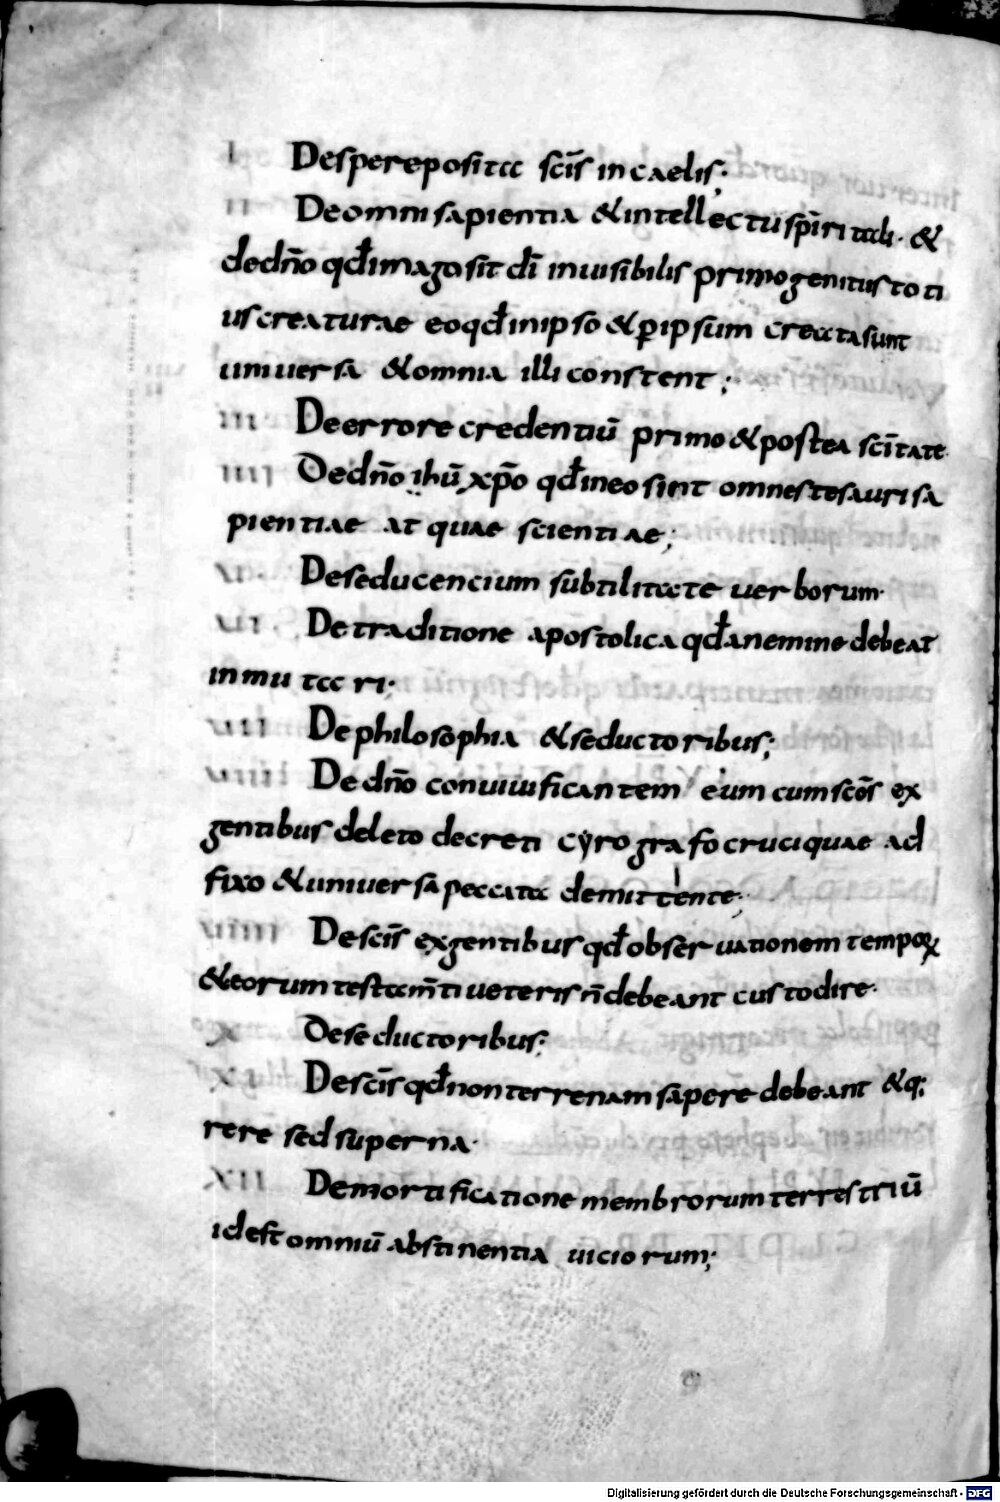 I De spe reposita scīs in caelis;
II De omni sapientia & intellectu spīritali. &
de dn̄o qđ imago sit dī inuisibilis primogenitus toti
us creaturae eo qđ in ipso & ꝑ ipsum creata sunt
uniuersa & omnia illi constent;
III De errore credentiū primo & postea scītate
IIII De dn̄o ihū xp̄o qđ in eo sint omnes tesauri sa
pientiae atquae scientiae;
V. De seducencium subtilitate uerborum.
VI. De traditione apostolica qđ a nemine debeat
inmutari;
VII De philosophia & seductoribus;
VIIII De dn̄o conuiuificantem eum cum scōs ex
gentibus deleto decreti cyrografo cruci quae ad
fixo & uniuersa peccata demittente;
VIIII De scīs ex gentibus qđ obseruationem tempoꝝ
& eorum testam̄ti ueteris n̄ debeant custodire.
X De seductoribus;
XI De scīs qđ non terrenam sapere debeant & q;
rere sed superna.
XII De mortificatione membrorum terrestriū
id est omniū abstinentia uiciorum;
Digitalisierung gefördert durch die Deutsche Forschungsgemeinschaft - DFG